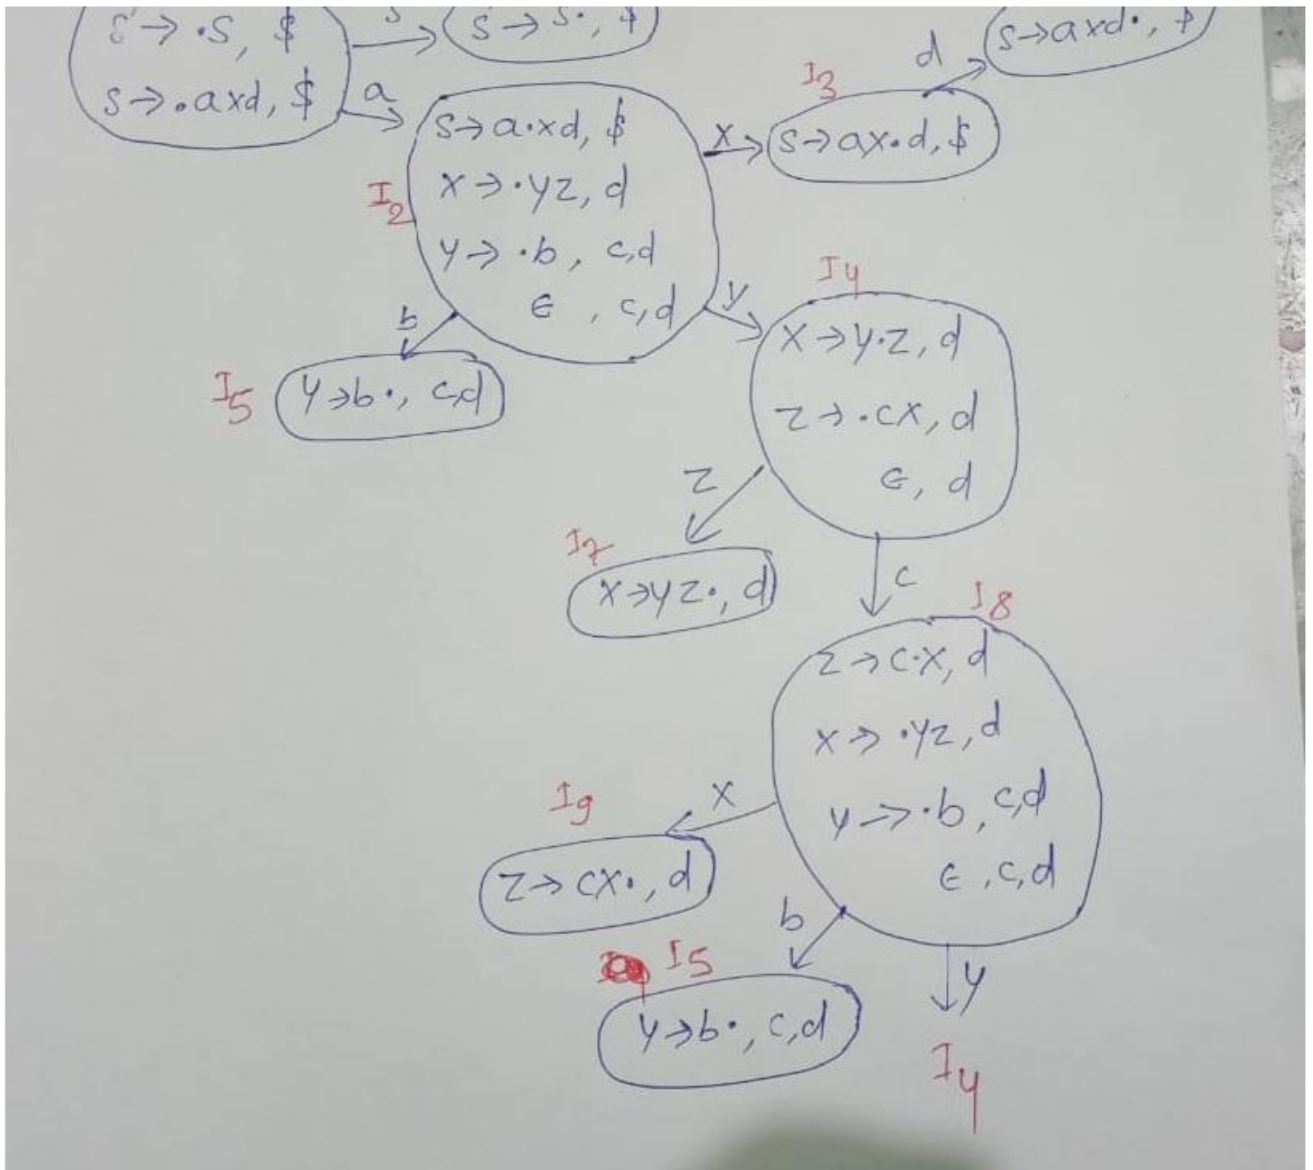 S' → ·S, $
S → ·axd, $
S
S → S·, $
a
d
S → axd·, $
I3
S → a·xd, $
x → ·yz, d
y → ·b, c,d
ϵ, c,d
I2
x
S → ax·d, $
b
y
I5
y → b·, c,d
I4
x → y·z, d
z → ·cx, d
ϵ, d
z
I7
x → yz·, d
c
I8
z → c·x, d
x → ·yz, d
y → ·b, c,d
ϵ, c,d
x
I9
z → cx·, d
b
I5
y → b·, c,d
y
I4